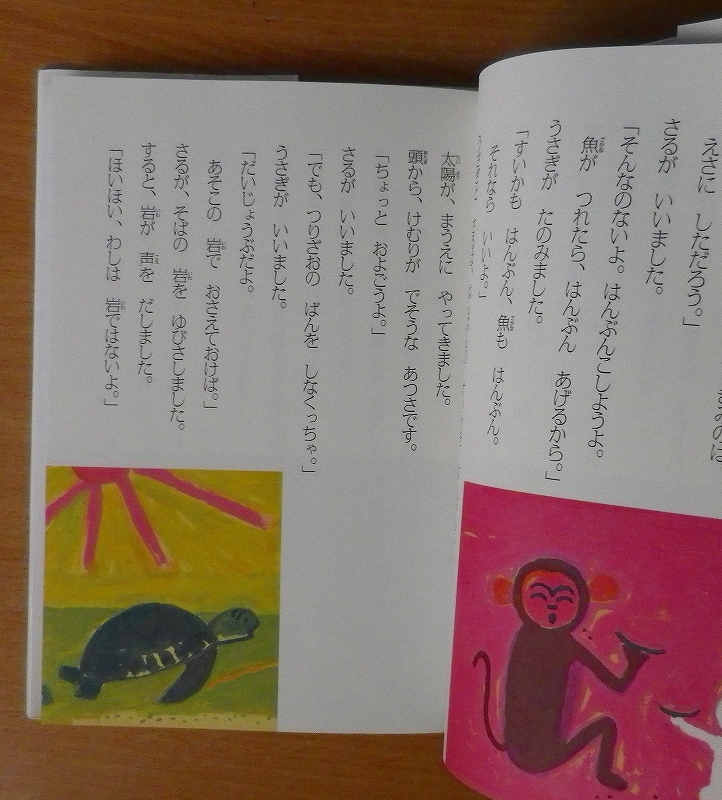 みのは
えさに しただろう。」
さるが いいました。
「そんなのないよ。はんぶんこしようよ。
魚が つれたら、はんぶん あげるから。」
うさぎが たのみました。
「すいかも はんぶん、魚も はんぶん。
それなら いいよ。」
太陽が、まうえに やってきました。
頭から、けむりが でそうな あつさです。
「ちょっと およごうよ。」
さるが いいました。
「でも、つりざおの ばんを しなくっちゃ。」
うさぎが いいました。
「だいじょうぶだよ。
あそこの 岩で おさえておけば。」
さるが、そばの 岩を ゆびさしました。
すると、岩が 声を だしました。
「ほいほい、わしは 岩ではないよ。」